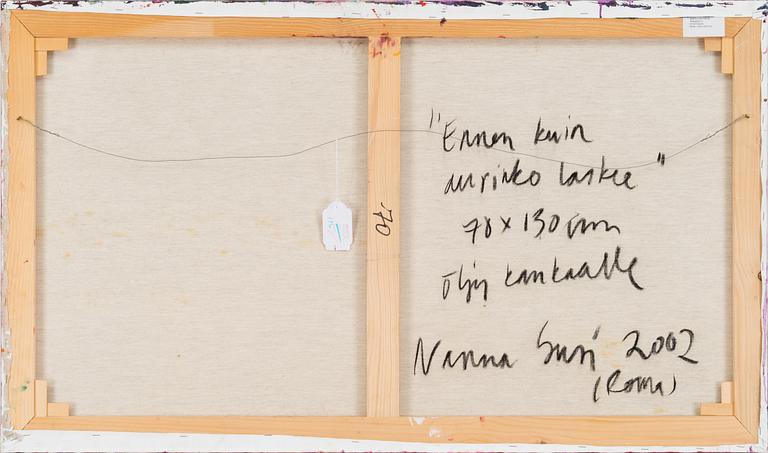 "Ennen kuin
aurinko laskee"
70x130 cm
öljy kankaalle
Nanna Susi 2002
(Roma)
70